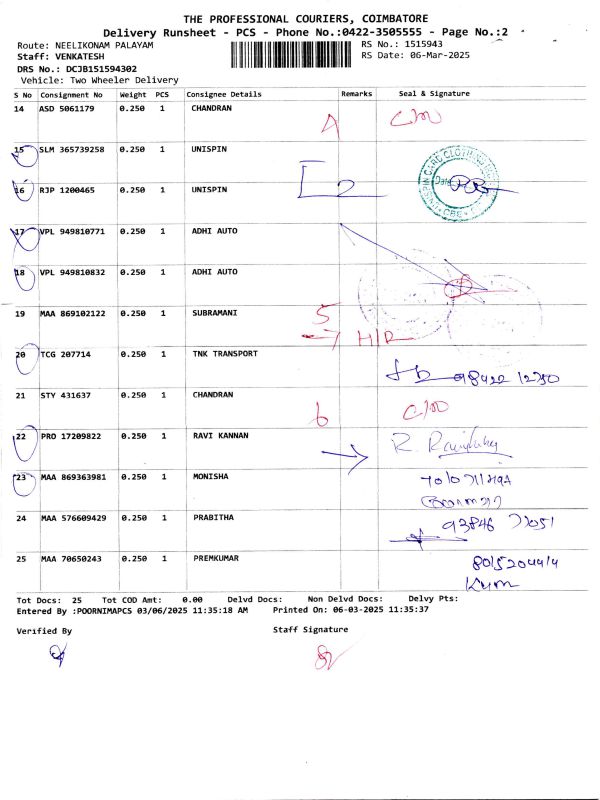 THE PROFESSIONAL COURIERS, COIMBATORE
Delivery Runsheet - PCS - Phone No.:0422-3505555 - Page No.:2
Route: NEELIKONAM PALAYAM
RS No.: 1515943
Staff: VENKATESH
RS Date: 06-Mar-2025
DRS No.: DCJB151594302
Vehicle: Two Wheeler Delivery
S No Consignment No Weight PCS Consignee Details Remarks Seal & Signature
14 ASD 5061179 0.250 1 CHANDRAN
15 SLM 365739258 0.250 1 UNISPIN
16 RJP 1200465 0.250 1 UNISPIN 2
17 VPL 949810771 0.250 1 ADHI AUTO
18 VPL 949810832 0.250 1 ADHI AUTO
19 MAA 869102122 0.250 1 SUBRAMANI 5
H/R
20 TCG 207714 0.250 1 TNK TRANSPORT
98422 12750
21 STY 431637 0.250 1 CHANDRAN 6
22 PRO 17209822 0.250 1 RAVI KANNAN R.
23 MAA 869363981 0.250 1 MONISHA
24 MAA 576609429 0.250 1 PRABITHA 93846 77051
25 MAA 70650243 0.250 1 PREMKUMAR
Tot Docs: 25 Tot COD Amt: 0.00 Delvd Docs: Non Delvd Docs: Delvy Pts:
Entered By :POORNIMAPCS 03/06/2025 11:35:18 AM Printed On: 06-03-2025 11:35:37
Verified By Staff Signature